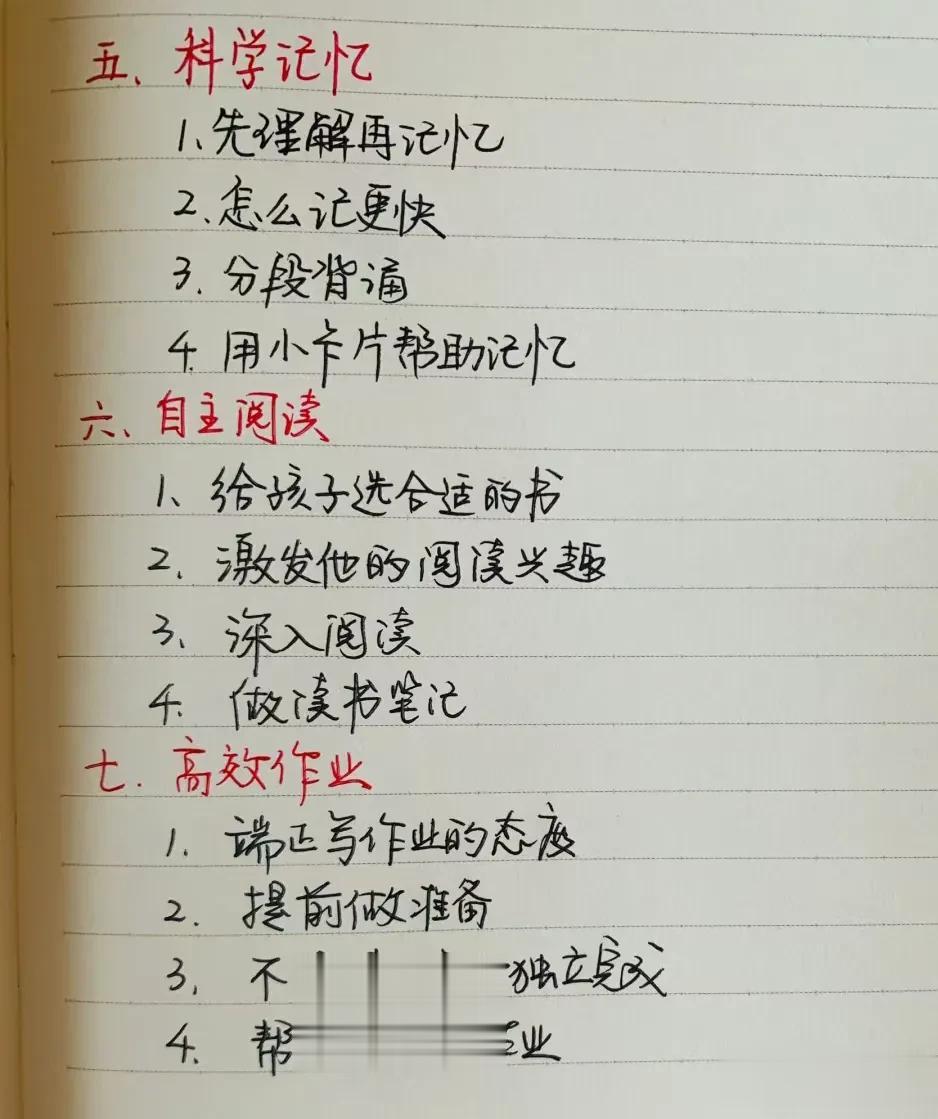 五、科学记忆
1、先理解再记忆
2、怎么记更快
3. 分段背诵
4. 用小卡片帮助记忆
六、自主阅读
1、给孩子选合适的书
2、激发他的阅读兴趣
3、深入阅读
4. 做读书笔记
七. 高效作业
1. 端正写作业的态度
2. 提前做准备
3. 不 独立完成
4. 帮 业